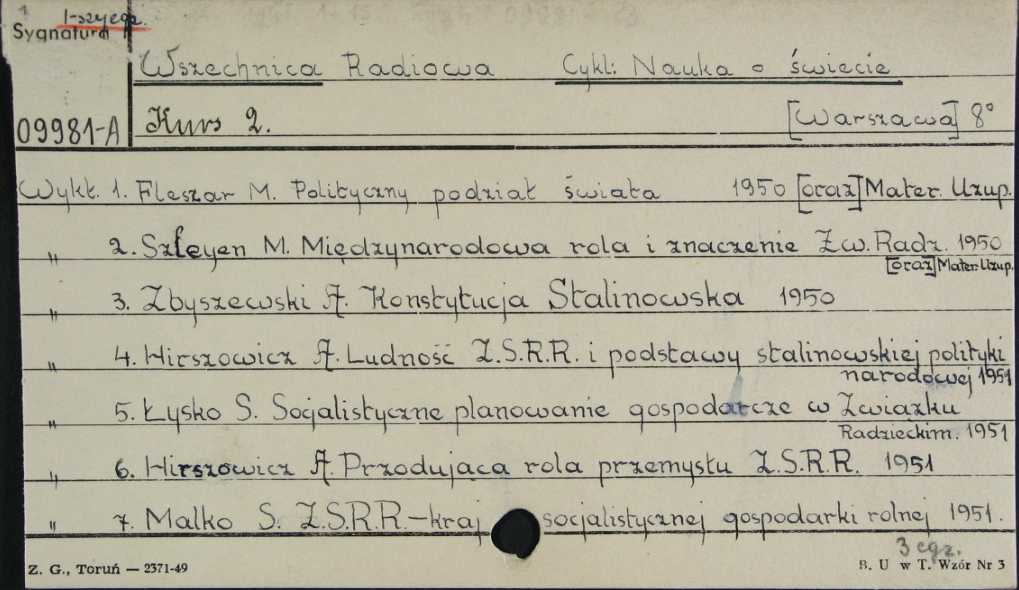 1-szy egz.
Sygnatura
Wszechnica Radiowa Cykl: Nauka o świecie
09981-A Kurs 2. [Warszawa] 8°
Wykł. 1. Fleszar M. Polityczny podział świata 1950 [oraz] Mater. Uzup.
" 2. Szleyen M. Międzynarodowa rola i znaczenie Zw. Radz. 1950
[oraz] Mater. Uzup.
" 3. Zbyszewski A. Konstytucja Stalinowska 1950
" 4. Hirszowicz A. Ludność Z.S.R.R. i podstawy stalinowskiej polityki
narodowej 1951
" 5. Łysko S. Socjalistyczne planowanie gospodarcze w Związku
Radzieckim. 1951
" 6. Hirszowicz A. Przodująca rola przemysłu Z.S.R.R. 1951
" 7. Malko S. Z.S.R.R. – kraj socjalistycznej gospodarki rolnej 1951.
3 egz.
Z. G., Toruń — 2371-49 B. U w T. Wzór Nr 3